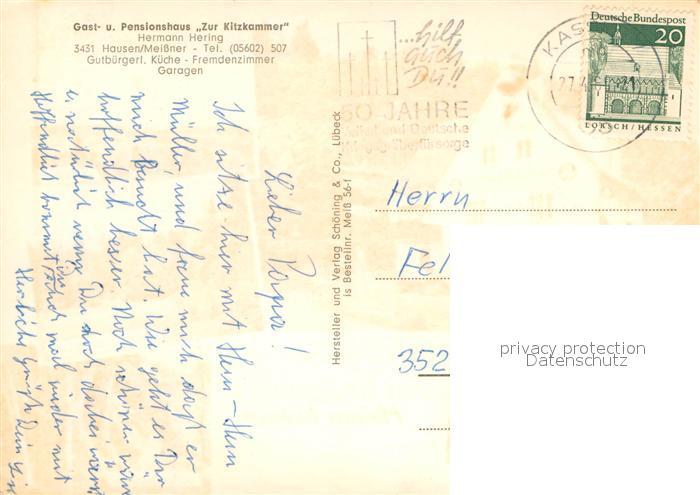 Gast- u. Pensionshaus „Zur Kitzkammer"
Hermann Hering
3431 Hausen/Meißner - Tel. (05602) 507
Gutbürgerl. Küche - Fremdenzimmer
Garagen
...hilf
auch
Du!!
50 JAHRE
Deutsche
Kriegsgräberfürsorge
KAS
Deutsche Bundespost
20
LORSCH/HESSEN
Hersteller und Verlag Schöning & Co., Lübeck
is Bestellnr. Meiß 56-f
Herrn
Fel
352
privacy protection
Datenschutz
Ich sitze hier mit Herrn
Müller und freue mich daß er
mich hat. Wie geht es Dir
hoffendlich besser. Noch schöner wäre
es natürlich wenn Du doch dabei wärst
Hoffendlich kommst Du mal wieder mit
Herzliche Grüße Dein
Lieber